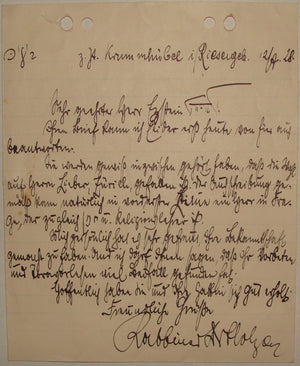 z. Zt. Krummhübel i. Riesengeb. 28.
Sehr geehrter Herr Epstein
Ihren Brief kann ich leider erst heute von hier aus
beantworten.
Sie werden gewiß inzwischen gehört haben, daß die Wahl
auf Herrn Lieber Zürich gefallen ist. Der Ausschreibung ge-
mäß kam natürlich in vorderster Reihe ein Herr in Fra-
ge, der zugleich u. Religionslehrer ist.
Mich persönlich hat es sehr gefreut Ihre Bekanntschaft
gemacht zu haben und ich darf Ihnen sagen, daß Ihr Vorbeten
und Thoravorlesen viel Beifall gefunden hat.
Hoffentlich haben Sie und Ihre Gattin sich gut erholt.
Freundliche Grüße
Rabbiner Dr